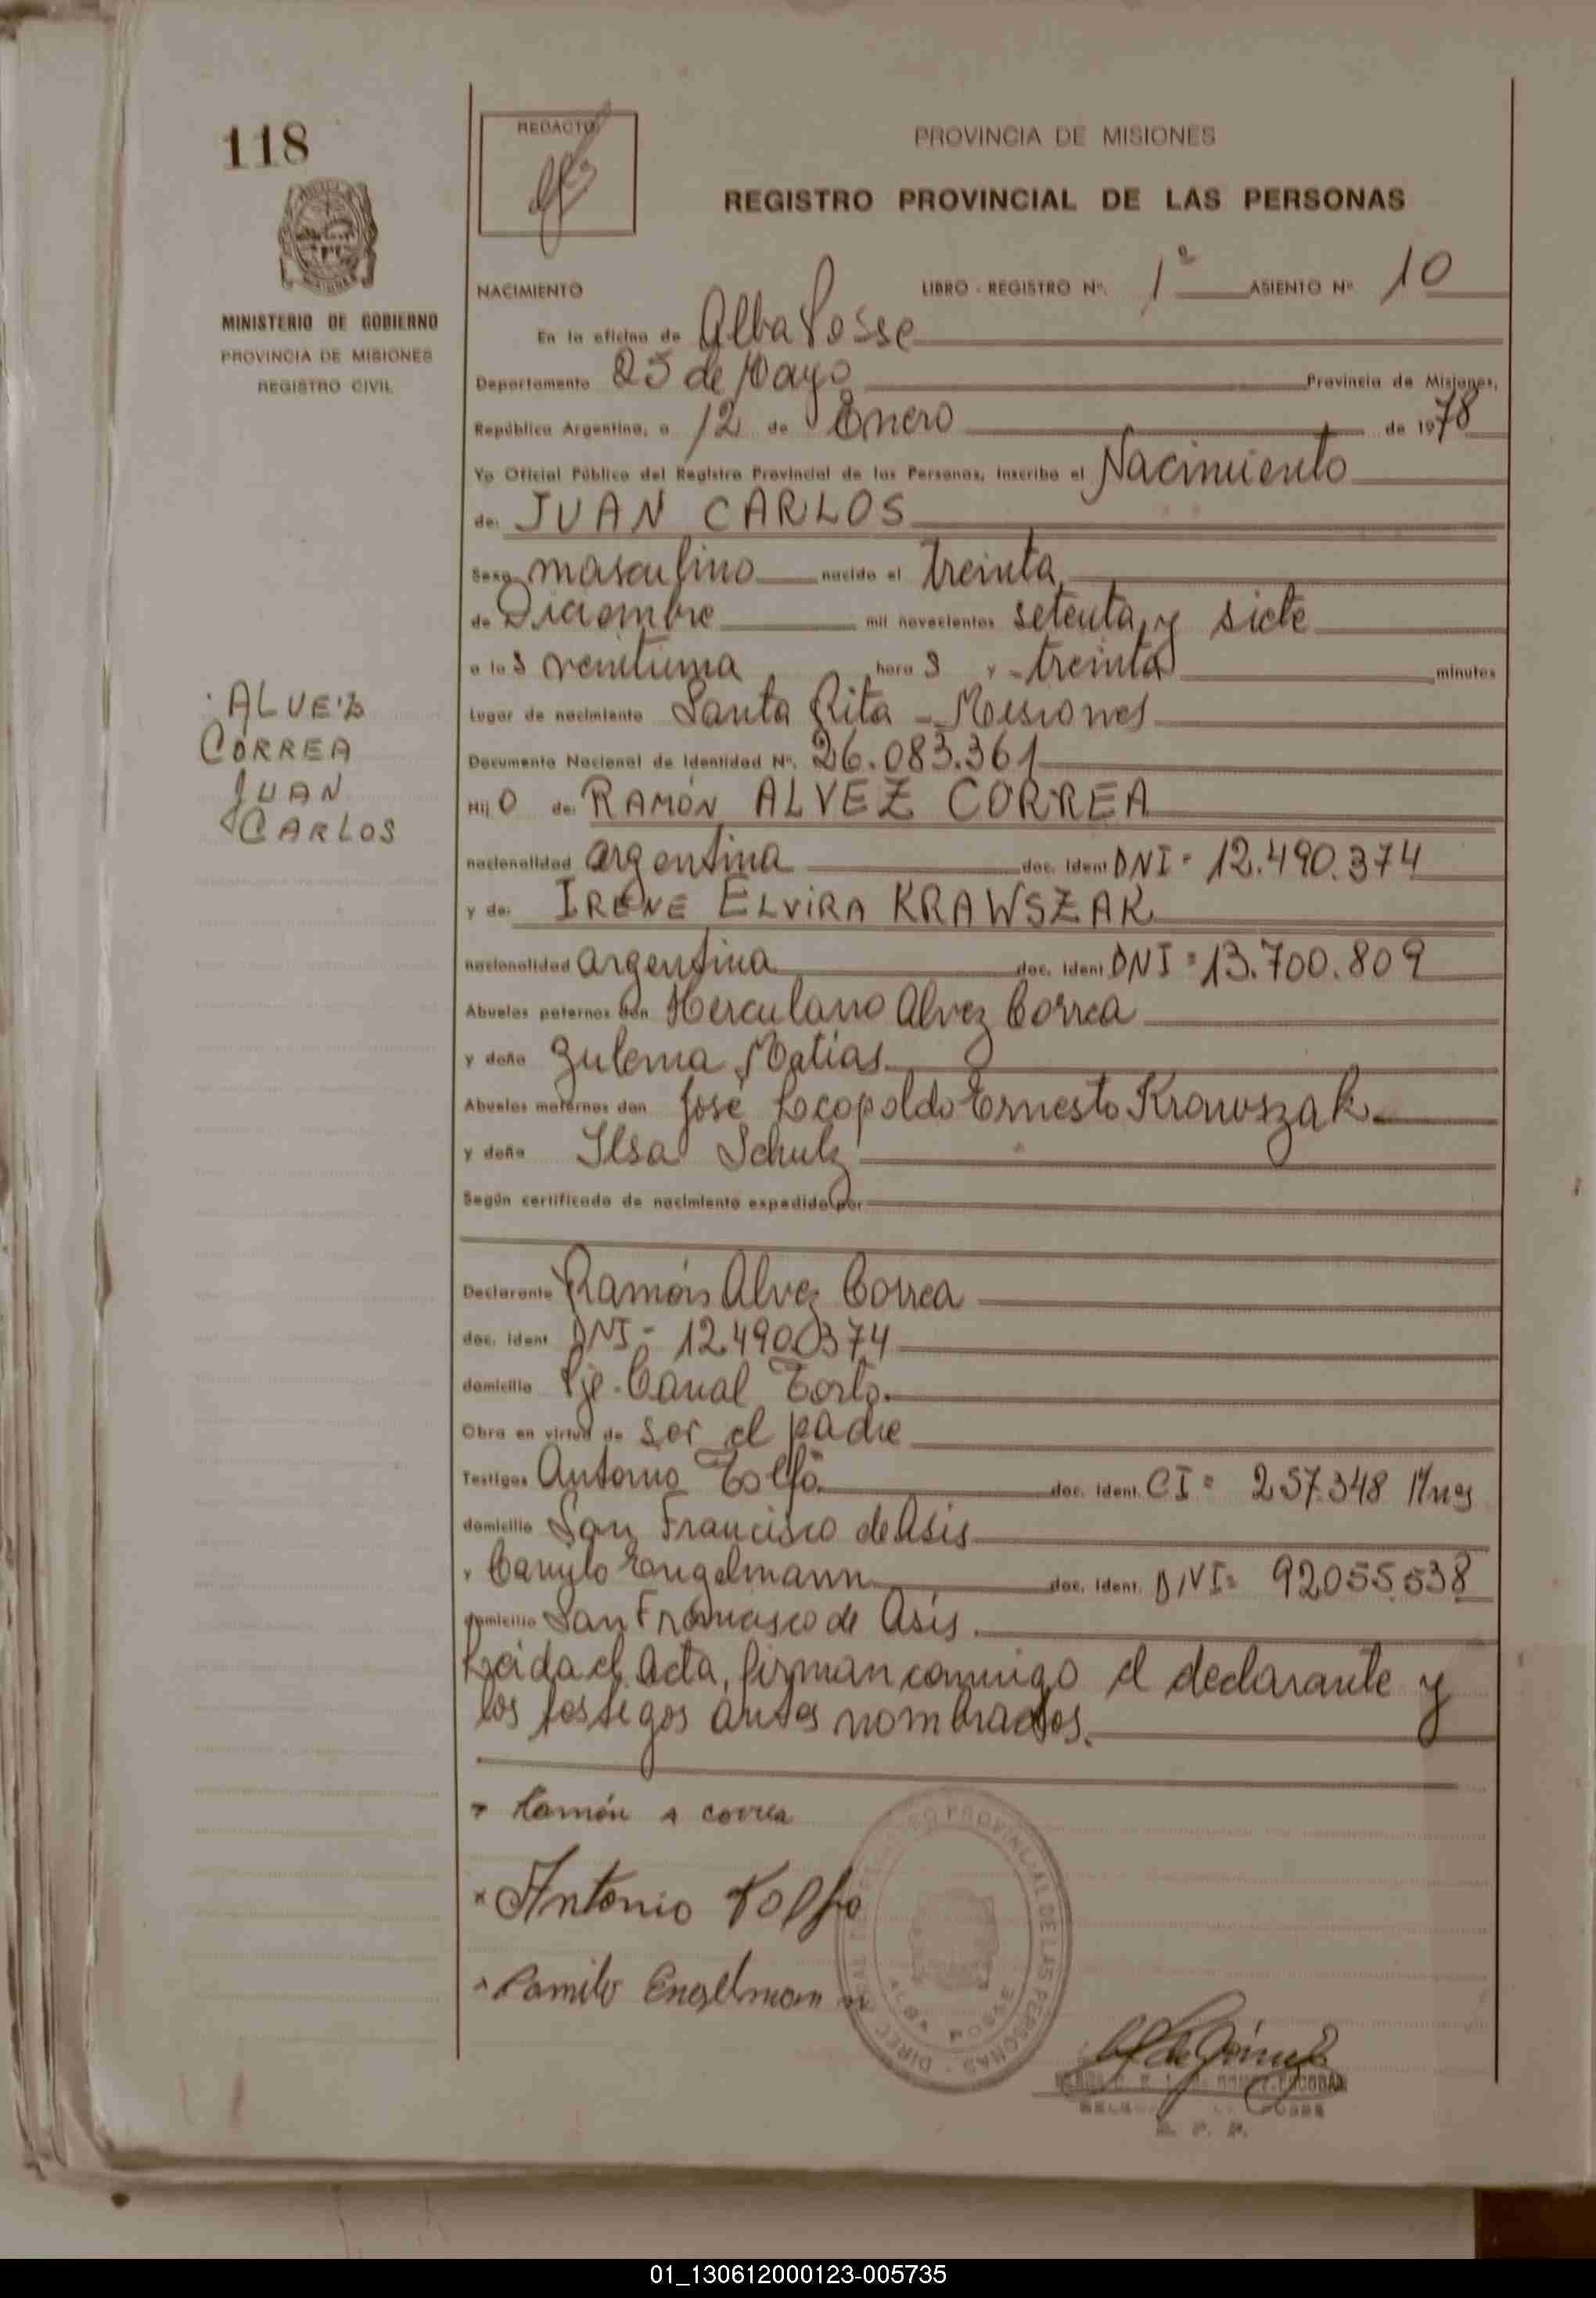 118
REDACTO
PROVINCIA DE MISIONES
REGISTRO PROVINCIAL DE LAS PERSONAS
MINISTERIO DE GOBIERNO
PROVINCIA DE MISIONES
REGISTRO CIVIL
NACIMIENTO LIBRO - REGISTRO Nº. 1º ASIENTO Nº 10
En la oficina de Alba Posse
Departamento 25 de Mayo Provincia de Misiones,
República Argentina, a 12 de Enero de 1978
Yo Oficial Público del Registro Provincial de las Personas, inscribo el Nacimiento
de: JUAN CARLOS
Sexo masculino nacido el treinta
de Diciembre mil novecientos setenta y siete
a las veintiuna horas y treinta minutos
Lugar de nacimiento Santa Rita - Misiones
Documento Nacional de Identidad Nº. 26.083.361
Hijo de: RAMÓN ALVEZ CORREA
nacionalidad argentina doc. ident DNI = 12.490.374
y de: IRENE ELVIRA KRAWSZAK
nacionalidad argentina doc. ident DNI = 13.700.809
Abuelos paternos don Herculano Alvez Correa
y doña Zulema Matias
Abuelos maternos don José Leopoldo Ernesto Krawszak
y doña Ilsa Schulz
Según certificado de nacimiento expedido por
Declarante Ramón Alvez Correa
doc. ident DNI = 12.490.374
domicilio Pje. Canal Torto.
Obra en virtud de ser el padre
Testigos Antonio Tolfo doc. ident. CI = 257.348 Mnes
domicilio San Francisco de Asis
y Camilo Engelmann doc. ident. DNI = 92055.538
domicilio San Francisco de Asís.
Leida el Acta, firman conmigo el declarante y
los testigos antes nombrados.
ALVEZ
CORREA
JUAN
CARLOS
x Ramón A Correa
x Antonio Tolfo
x Camilo Engelmann
DIREC REGISTRO PROVINCIAL DE LAS PERSONAS
ALBA POSSE
R. P. P.
01_130612000123-005735